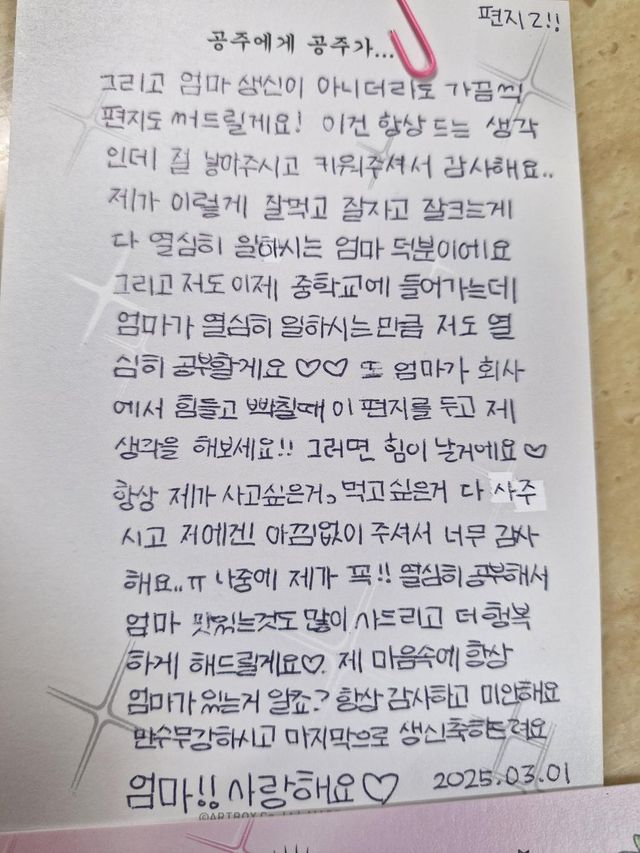 편지 2!!
공주에게 공주가...
그리고 엄마 생신이 아니더라도 가끔씩
편지도 써드릴게요! 이건 항상 드는 생각
인데 절 낳아주시고 키워주셔서 감사해요..
제가 이렇게 잘먹고 잘자고 잘크는게
다 열심히 일하시는 엄마 덕분이에요
그리고 저도 이제 중학교에 들어가는데
엄마가 열심히 일하시는만큼 저도 열
심히 공부할게요 ♡♡ 또 엄마가 회사
에서 힘들고 빡칠때 이 편지를 두고 제
생각을 해보세요!! 그러면 힘이 날거에요 ♡
항상 제가 사고싶은거, 먹고싶은거 다 사주
시고 저에겐! 아낌없이 주셔서 너무 감사
해요..ㅠ 나중에 제가 꼭!! 열심히 공부해서
엄마 맛있는것도 많이 사드리고 더 행복
하게 해드릴게요♡. 제 마음속에 항상
엄마가 있는거 알죠? 항상 감사하고 미안해요
만수무강하시고 마지막으로 생신축하드려요
엄마!! 사랑해요♡ 2025.03.01